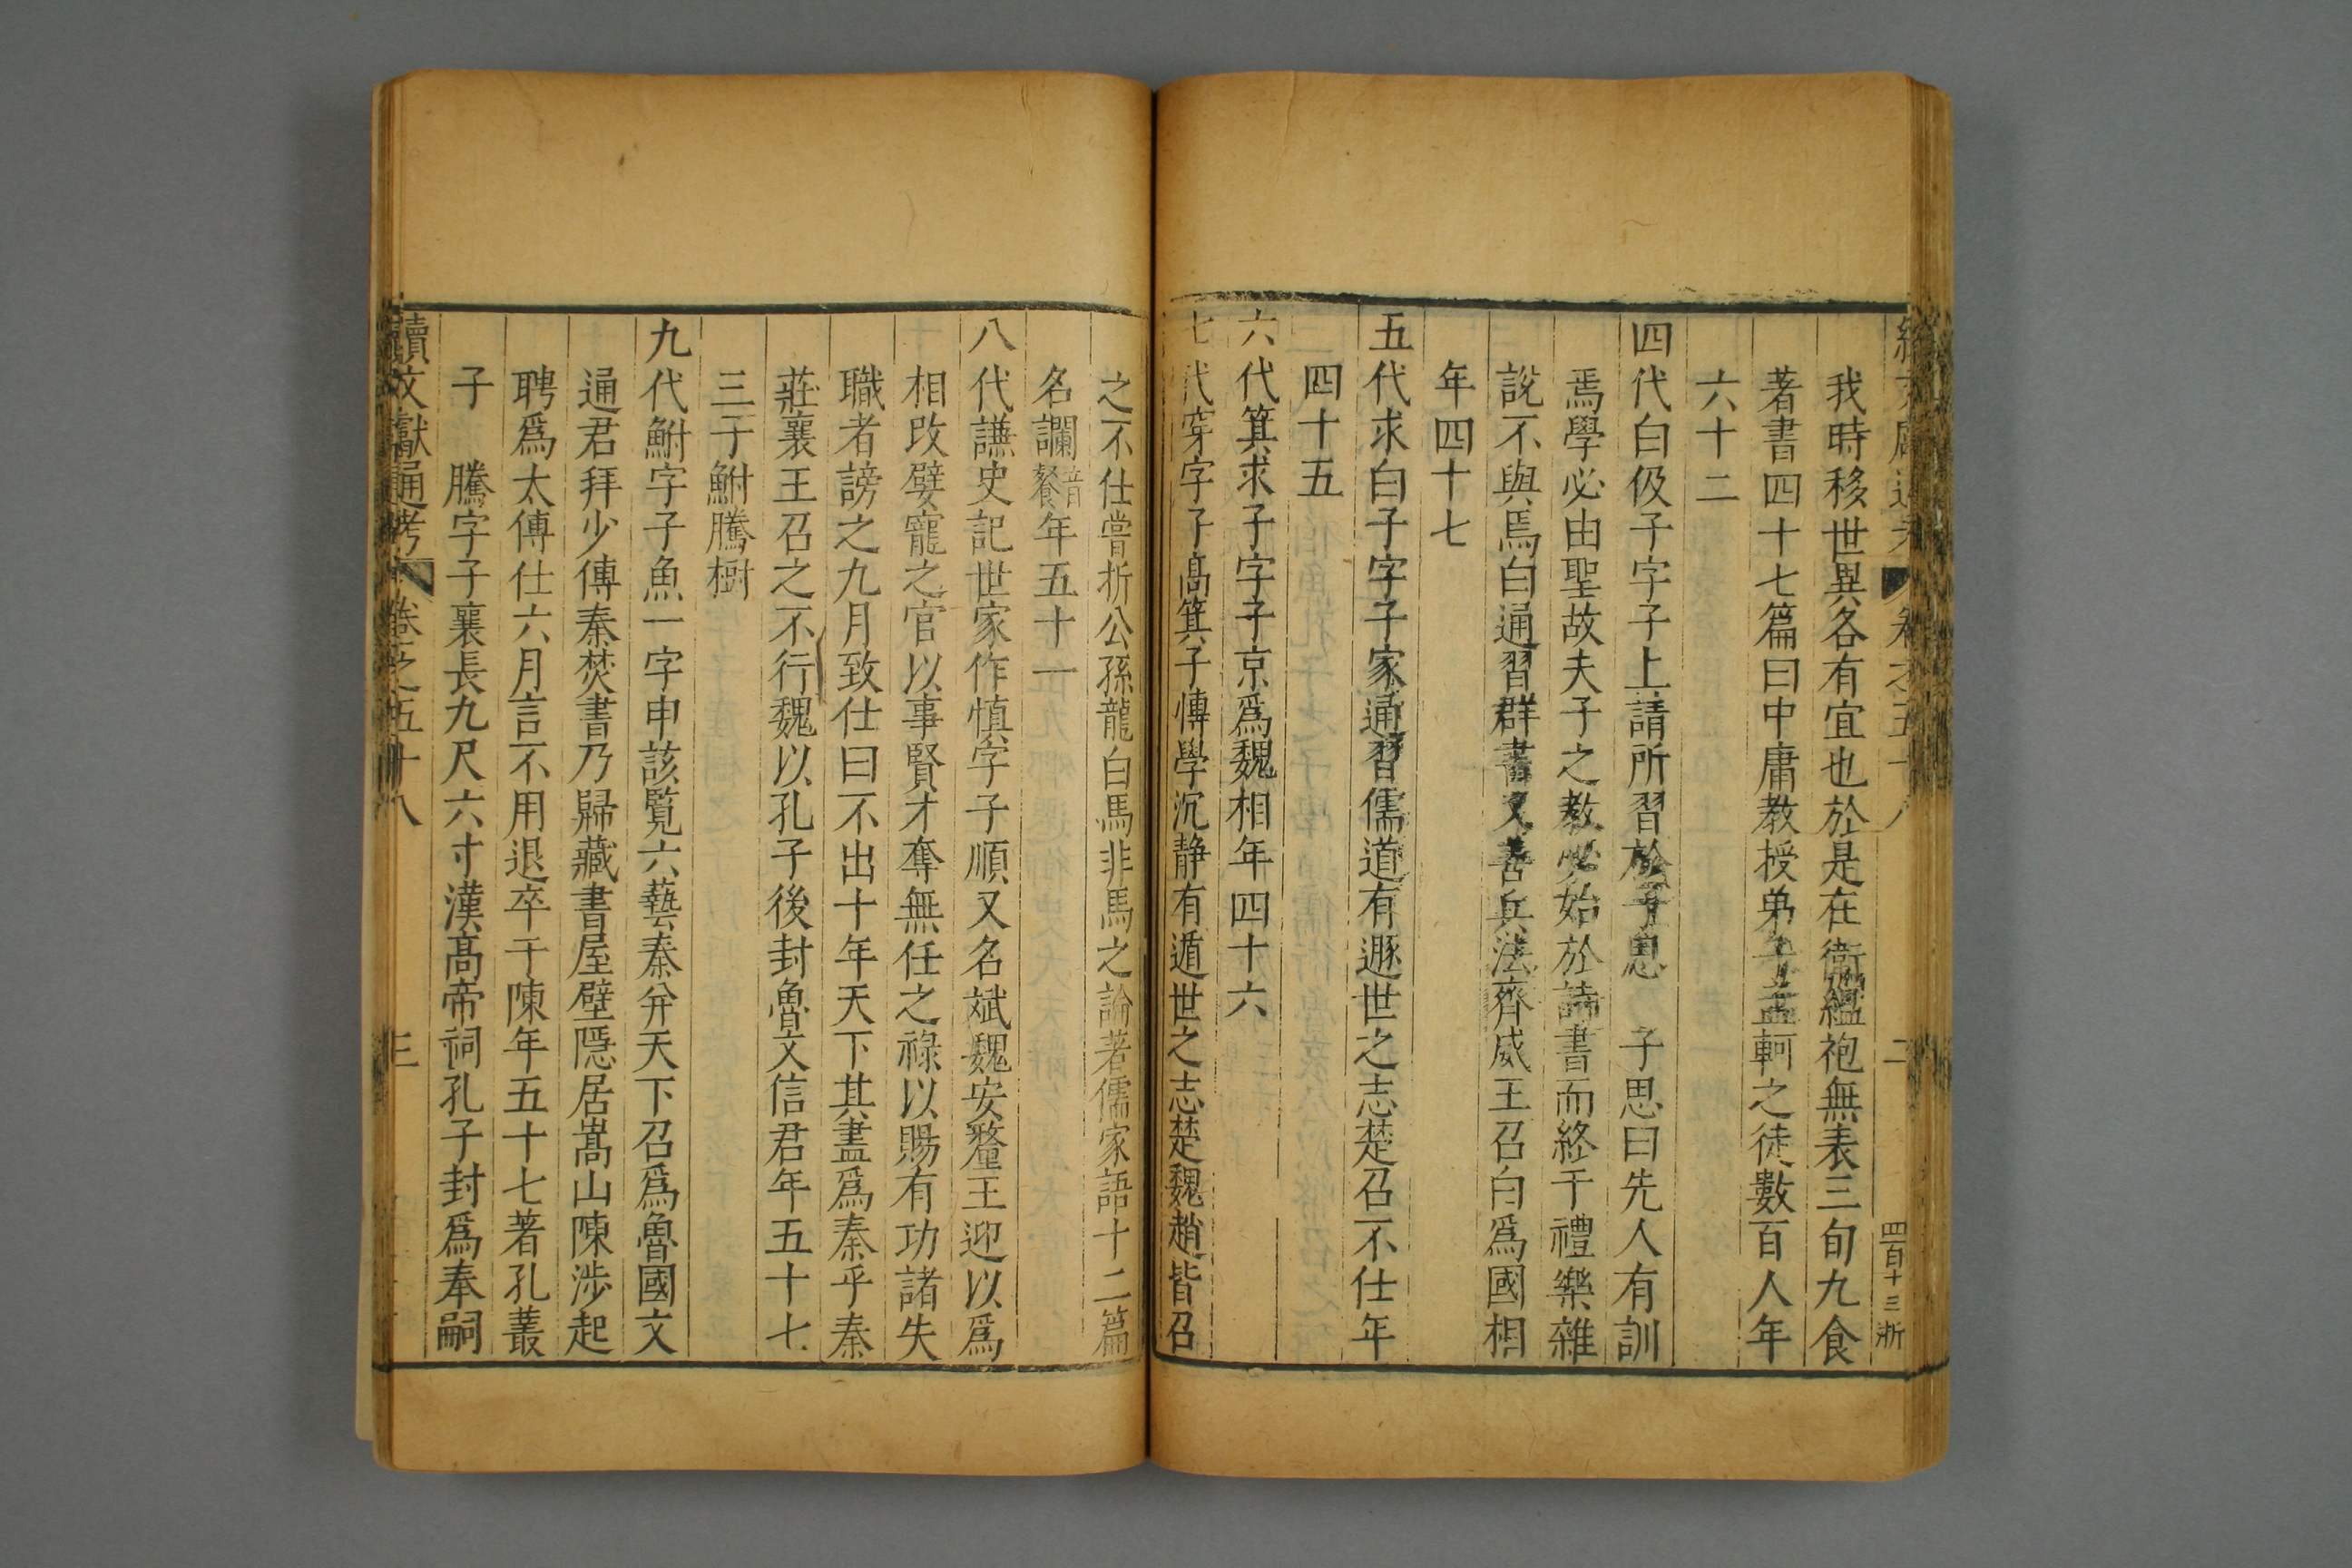 續文獻通考 卷之五十八 二 四百十三 浙
我時移世異各有宜也於是在衛緼袍無表三旬九食
著書四十七篇曰中庸教授弟子孟軻之徒數百人年
六十二
四代白伋子字子上請所習於子思 子思曰先人有訓
焉學必由聖故夫子之教必始於詩書而終于禮樂雜
說不與焉白通習群書又善兵法齊威王召白爲國相
年四十七
五代求白子字子家通習儒道有遯世之志楚召不仕年
四十五
六代箕求子字子京爲魏相年四十六
七代穿字子高箕子愽學沉静有遁世之志楚魏趙皆召
之不仕嘗折公孫龍白馬非馬之論著儒家語十二篇
名讕音餐年五十一
八代謙史記世家作慎字子順又名斌魏安釐王迎以爲
相改嬖寵之官以事賢才奪無任之祿以賜有功諸失
職者謗之九月致仕曰不出十年天下其盡爲秦乎秦
莊襄王召之不行魏以孔子後封魯文信君年五十七
三子鮒騰樹
九代鮒字子魚一字申該覧六藝秦并天下召爲魯國文
通君拜少傅秦焚書乃歸藏書屋壁隱居嵩山陳涉起
聘爲太傅仕六月言不用退卒于陳年五十七著孔叢
子 騰字子襄長九尺六寸漢高帝祠孔子封爲奉嗣
續文獻通考 卷之五十八 三